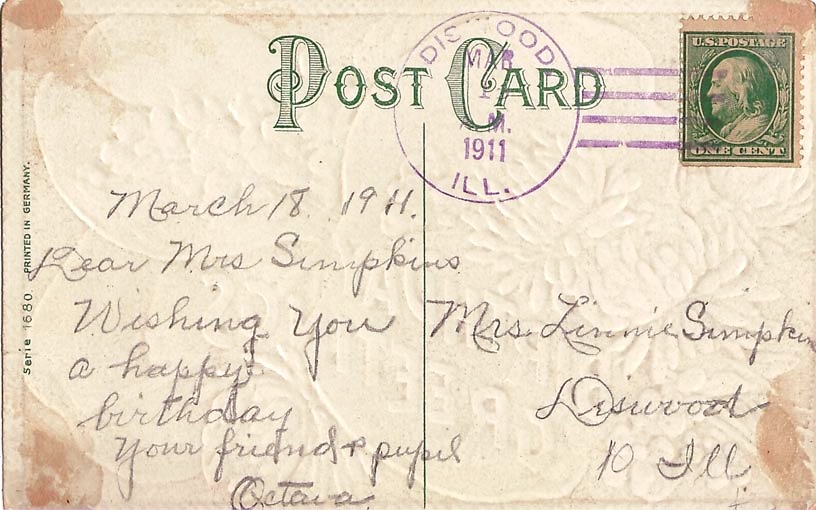 POST CARD
DISWOOD
MAR
M.
1911
ILL.
U.S. POSTAGE
ONE CENT
Serie 1680. PRINTED IN GERMANY.
March 18. 1911.
Dear Mrs Simpkins
Wishing You
a happy
birthday
Your friend & pupil
Octava.
Mrs. Linnie Simpkin
Diswood
Ill.